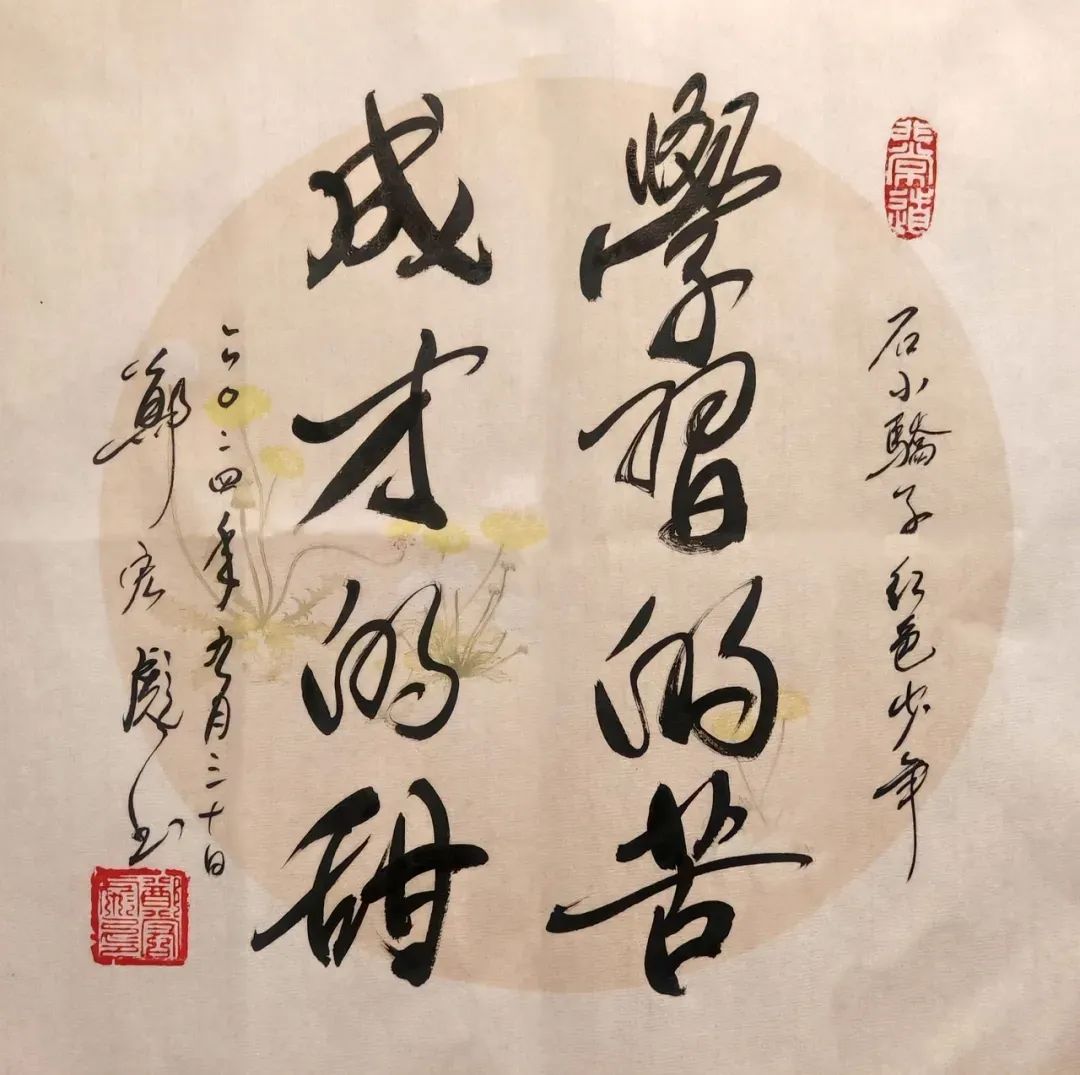 非常道
石小驕子 红色少年
學習的苦
成才的甜
二〇二四年九月三十日
鄭宏彪书